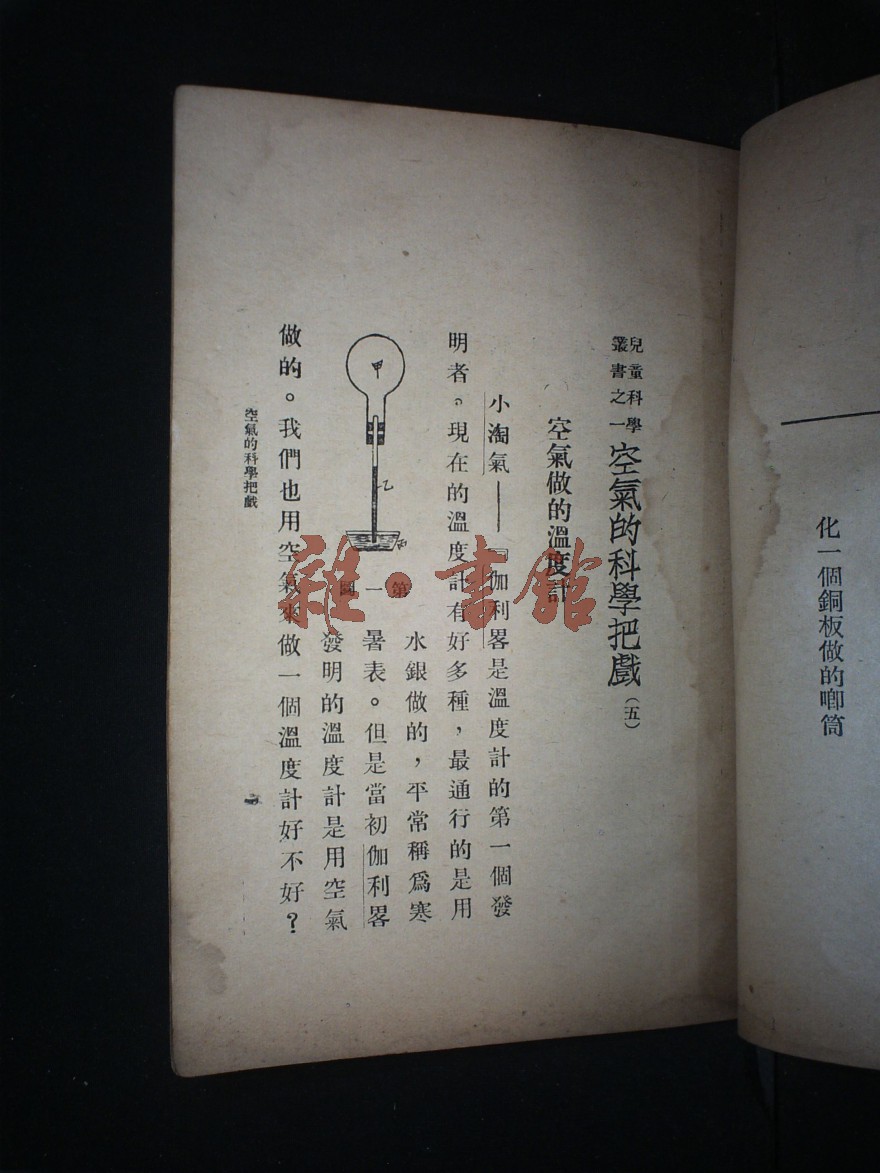 化一個銅板做的唧筒
兒童科學
叢書之一
空氣的科學把戲(五)
空氣做的溫度計
小淘氣——『伽利畧是溫度計的第一個發
明者。現在的溫度計有好多種，最通行的是用
水銀做的，平常稱爲寒
暑表。但是當初伽利畧
發明的溫度計是用空氣
做的。我們也用空氣來做一個溫度計好不好？
甲
乙
丙
第一圖
空氣的科學把戲
雜·書館